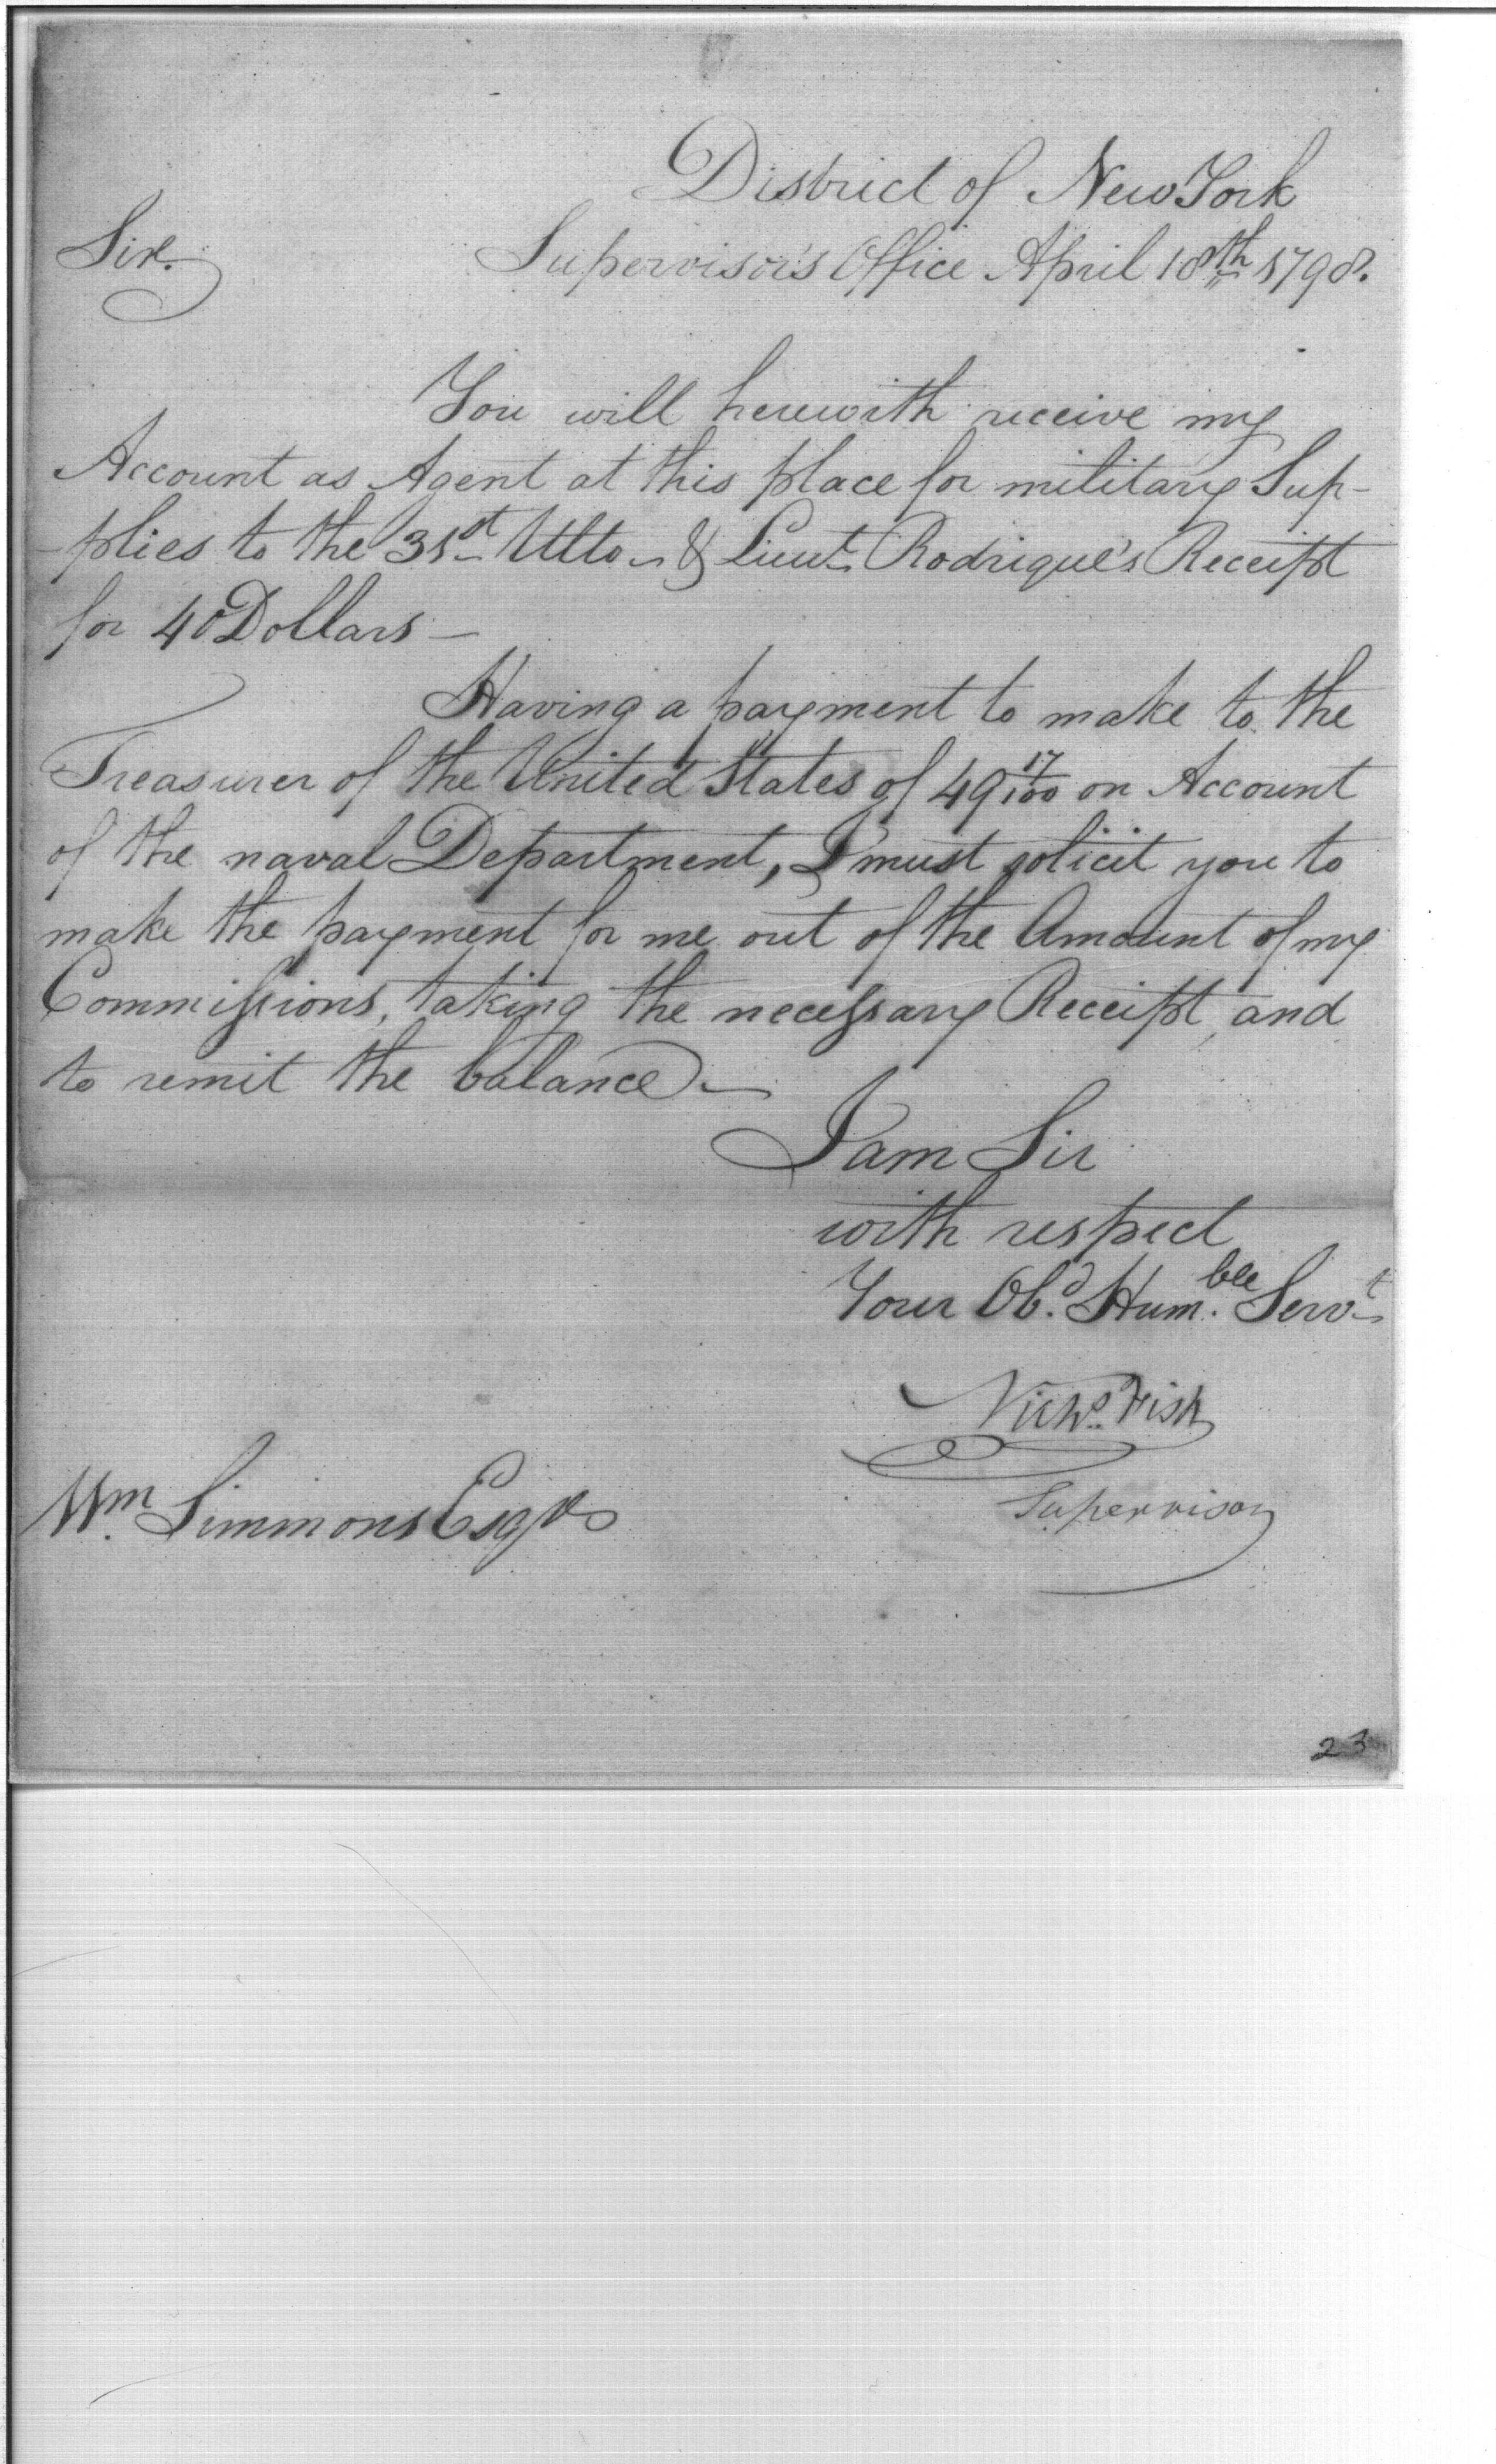 District of New York
Sir. Supervisor's Office April 18th 1798.
You will herewith receive my
Account as Agent at this place for military Sup-
-plies to the 31st Ulto. & Lieut. Rodrique's Receipt
for 40 Dollars —
Having a payment to make to the
Treasurer of the United States of 49 17/100 on Account
of the naval Department, I must solicit you to
make the payment for me out of the Amount of my
Commissions, taking the necessary Receipt, and
to remit the balance —
I am Sir
with respect
Your Obd. Humble Servt
Nichs. Fish
Supervisor
Wm. Simmons Esqr
23